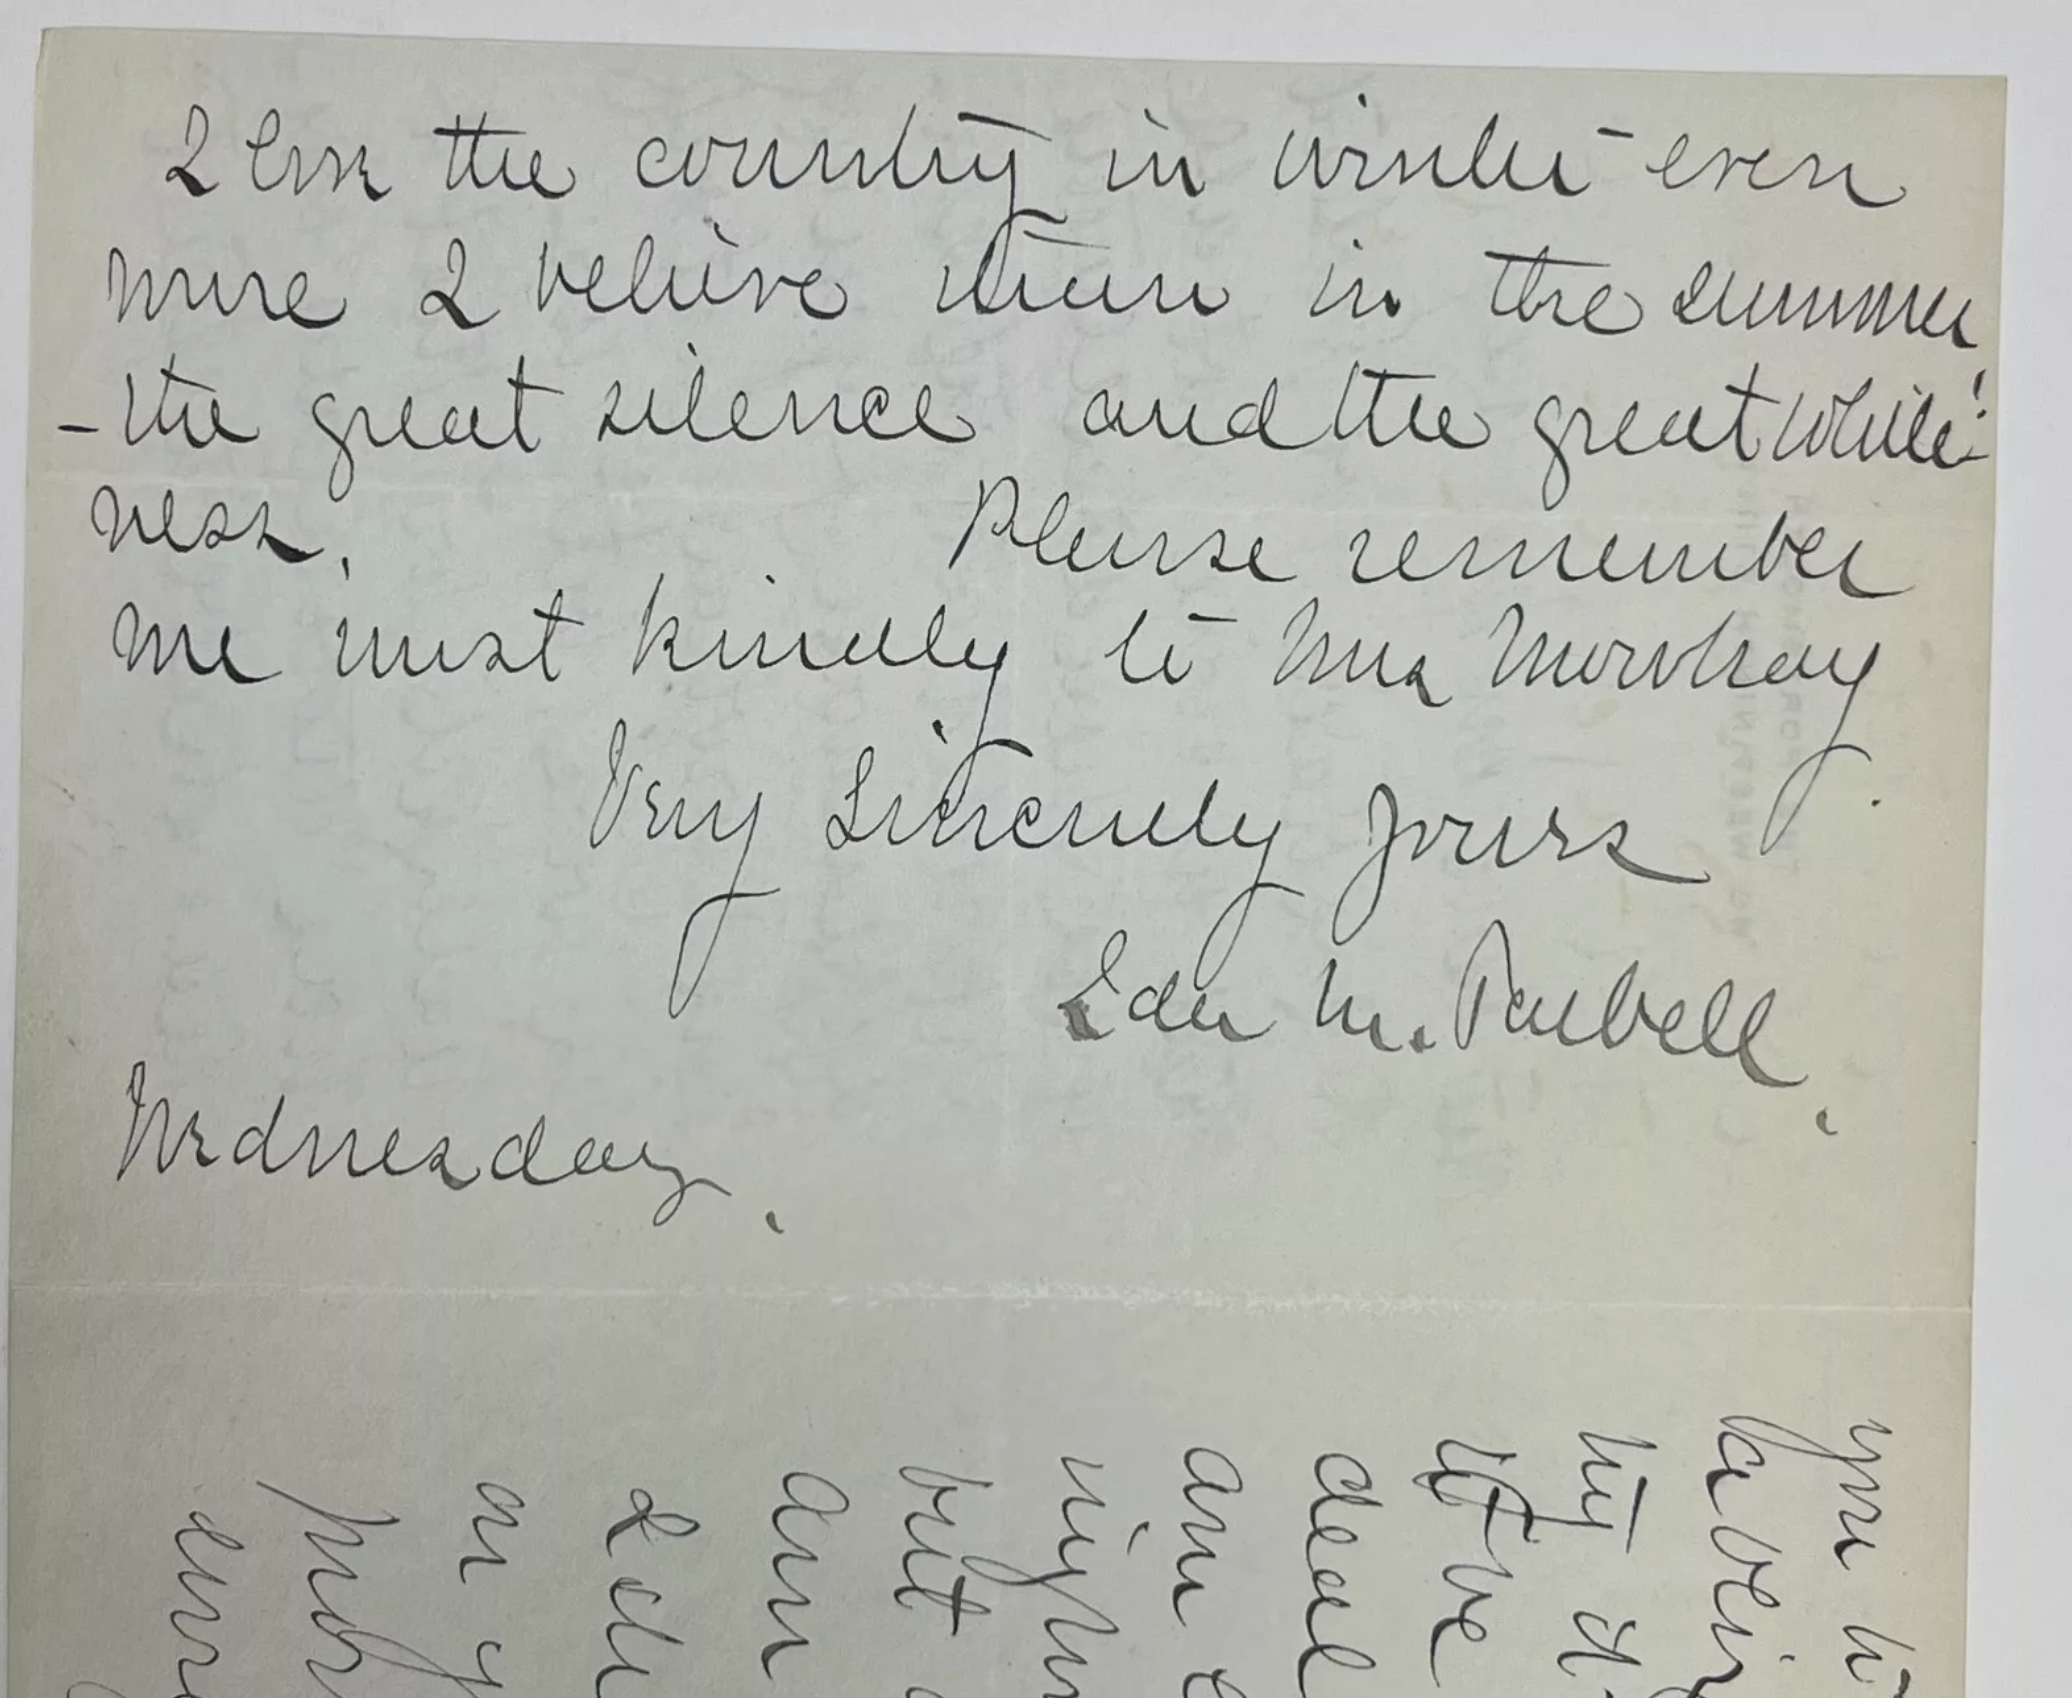 I love the country in winter - even
more I believe than in the summer
- the great silence and the great white-
ness. Please remember
me most kindly to Mrs Mowbray
Very Sincerely yours
Ida M. Tarbell.
Wednesday.
you to
try
it be
deal
am
night
but
am
I do
on